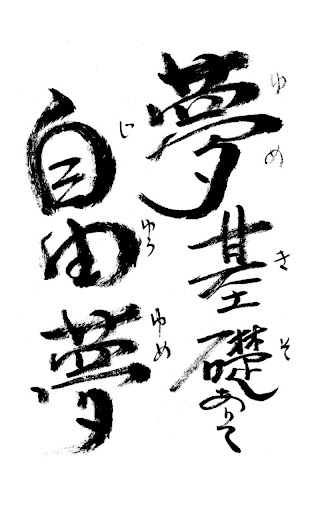 夢基礎ありて
ゆめ
きそ
自由夢
じゆう
ゆめ